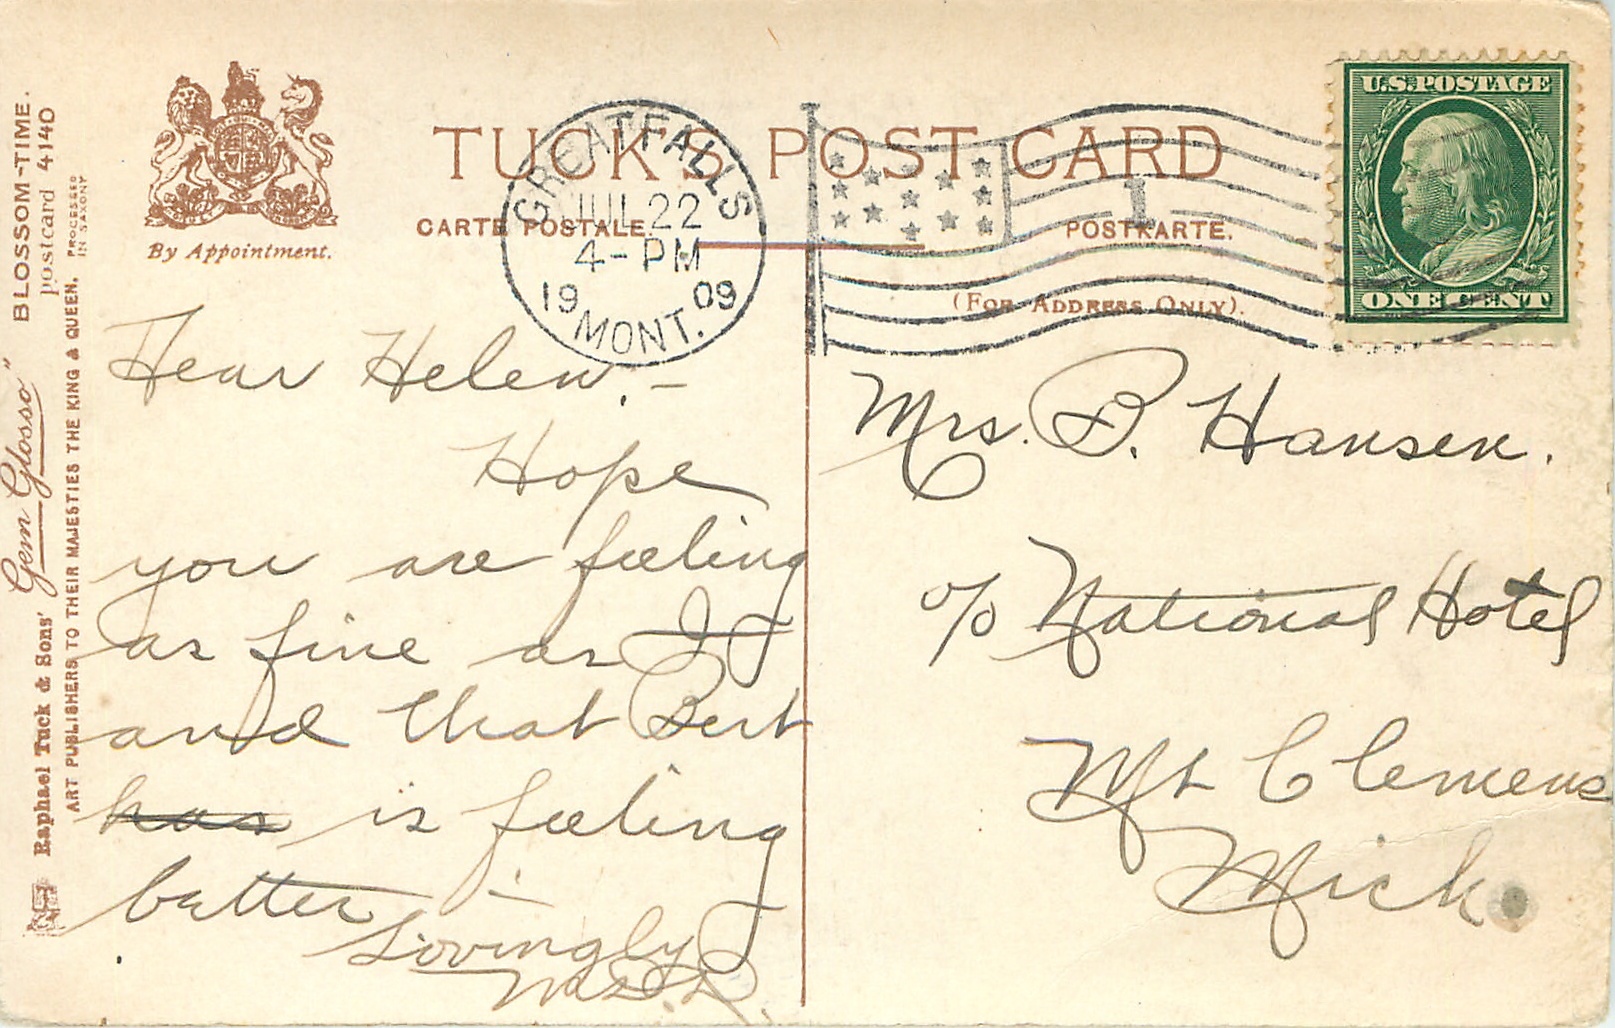 BLOSSOM-TIME.
"Gem Glosso" postcard 4140
Raphael Tuck & Sons'
ART PUBLISHERS TO THEIR MAJESTIES THE KING & QUEEN.
PROCESSED
IN SAXONY
By Appointment.
TUCK'S POST CARD
CARTE POSTALE.
POSTKARTE.
(FOR ADDRESS ONLY).
GREAT FALLS
JUL 22
4-PM
1909
MONT.
1
U.S. POSTAGE
ONE CENT
Dear Helen, –
Hope
you are feeling
as fine as I
and that Bert
has is feeling
better –
Lovingly
Mrs. B. Hansen.
c/o National Hotel
Mt Clemens
Mich.